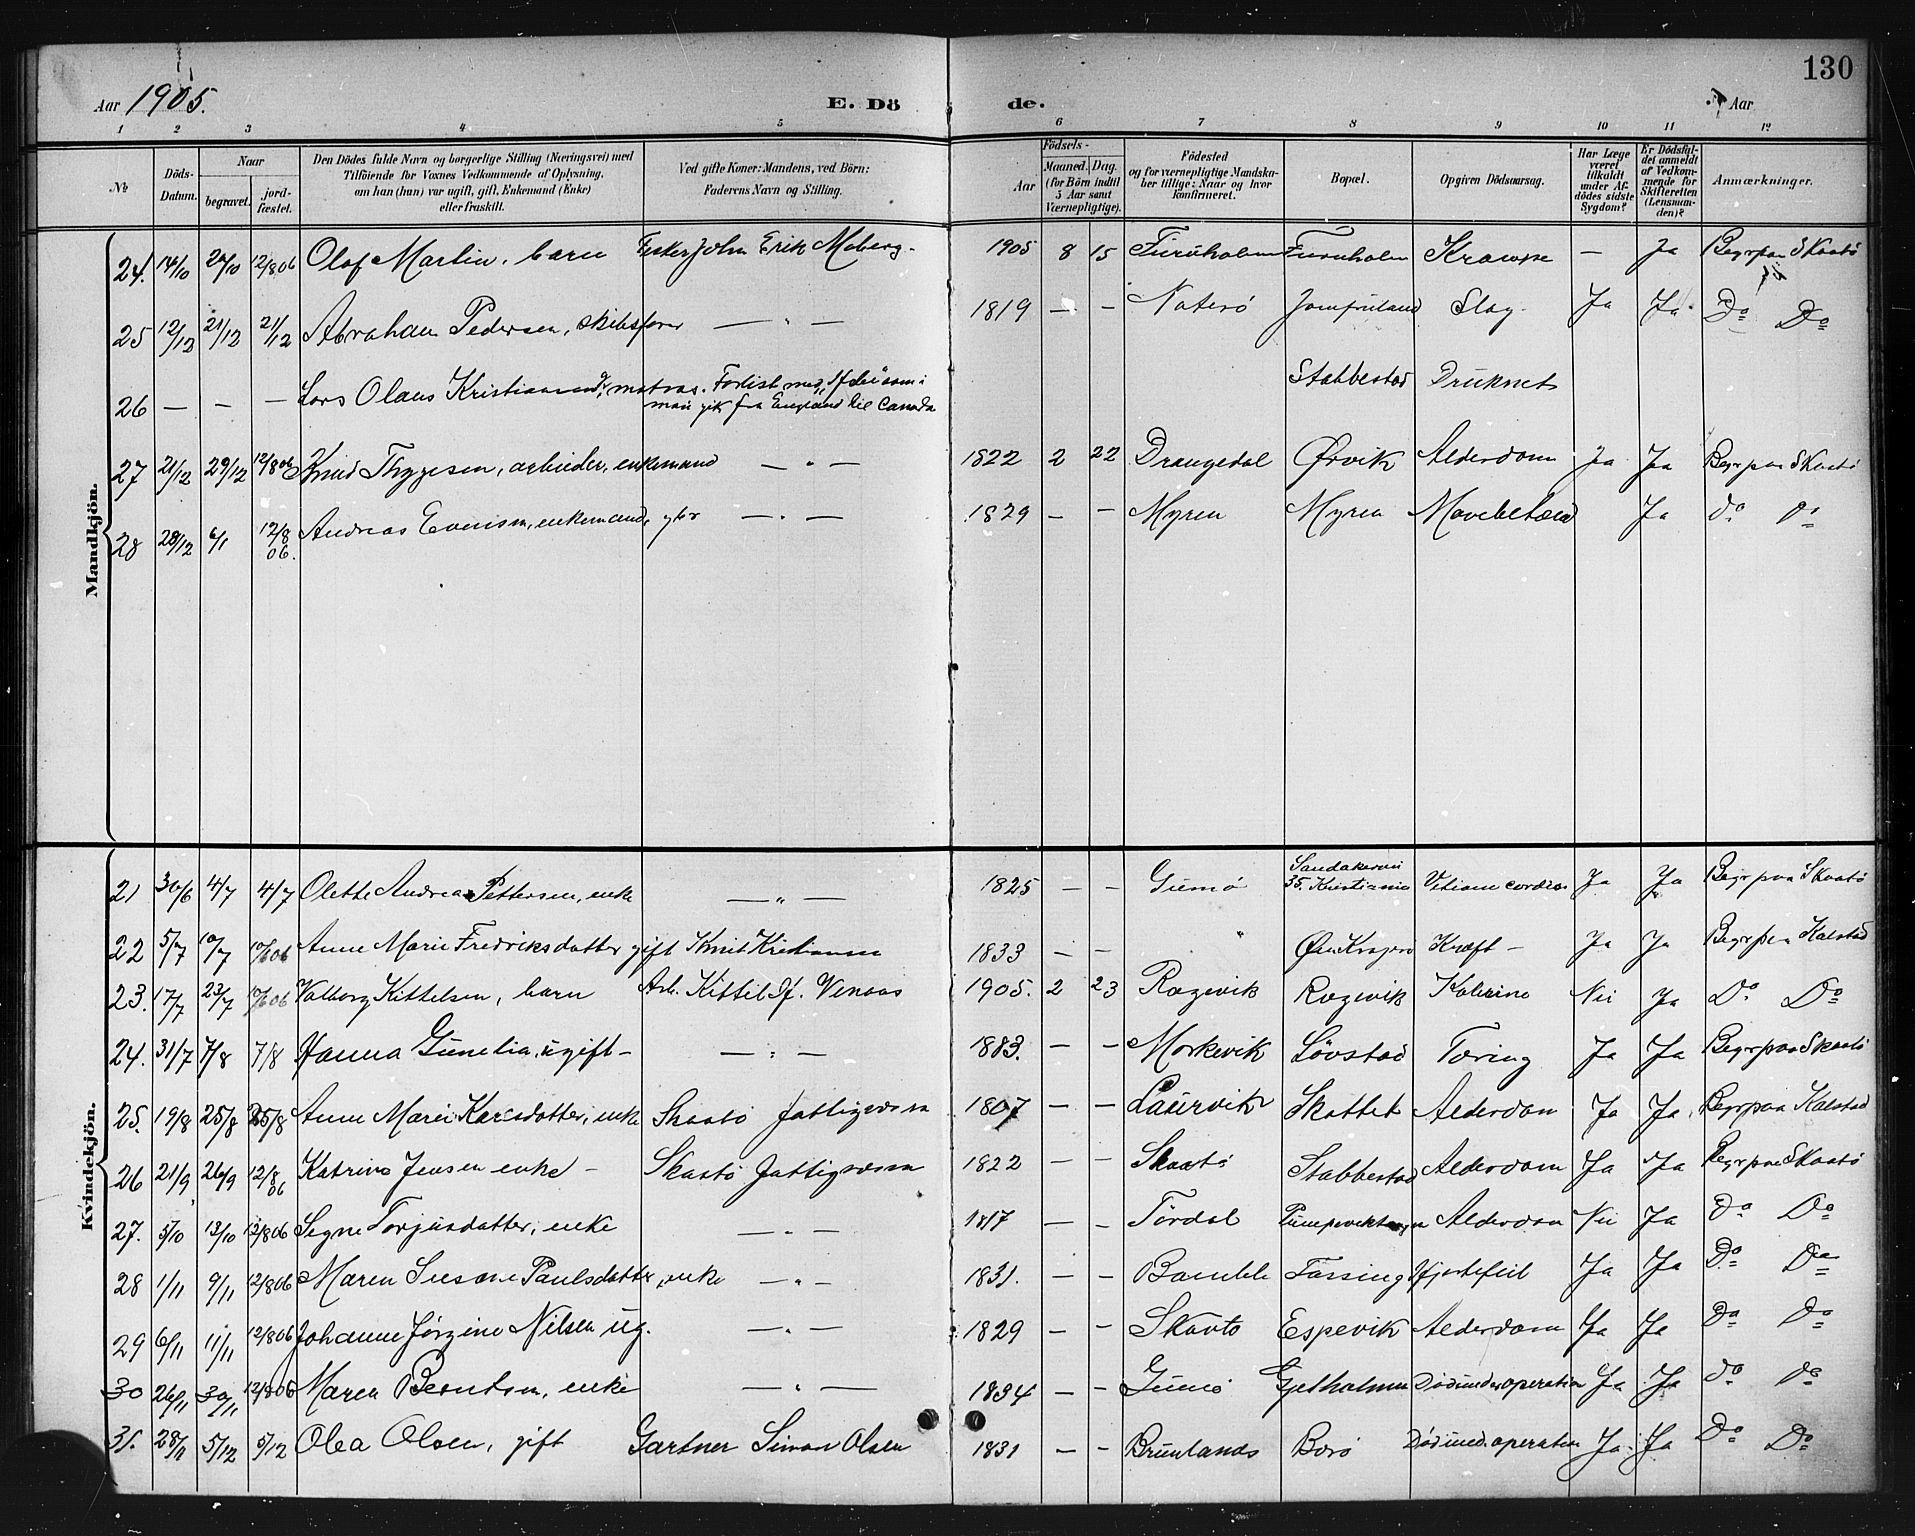 130
Aar 1905. E. Dö de. Aar
1 2 3 4 5 6 7 8 9 10 11 12
№ Döds-Datum. Naar begravet. jord-fæstet. Den Dödes fulde Navn og borgerlige Stilling (Næringsvei) med Tilföiende for Voxnes Vedkommende af Oplysning, om han (hun) var ugift, gift, Enkemand (Enke) eller fraskilt. Ved gifte Koner: Mandens, ved Börn: Faderens Navn og Stilling. Födsels- Aar Maaned. Dag. (for Börn indtil 5 Aar samt Værnepligtige). Födested og for værnepligtige Mandska-ber tillige: Naar og hvor konfirmeret. Bopæl. Opgiven Dödsaarsag. Har Læge været tilkaldt under Af-dödes sidste Sygdom? Er Dödsfal-det anmeldt af Vedkom-mende for Skifteretten (Lensman-den)? Anmærkninger.
Mandkjön.
24. 14/10 24/10 12/8 06 Olaf Martin, barn Fisker John Erik Moberg. 1905 8 15 Furuholmen Furuholmen Krampe — Ja Begr paa Skaatö
25 12/12 21/12 21/12 Abraham Pedersen, skibsfører — " — 1819 — — Naterö Jomfruland Slag. Ja Ja. Do Do
26 — — — Lars Olaus Kristiansen, matros. Forlist med som i mai gik fra England til Canada Stabbestad Druknet
27 21/12 29/12 12/8 06 Knud Thygesen, arbeider, enkemand — " — 1822 2 22 Drangedal Ørvik Alderdom Ja Ja Begr paa Skaatö
28 28/12 6/1 12/8 06. Andreas Evensen, enkemand, — " — 1829 — — Myren Myren Ja do Do
Kvindekjön.
21 30/6 4/7 4/7 Olette Andrea Pettersen, enke — " — 1825 — — Gumö Sandakerveien 35, Kristiania Vitium cordis Ja Ja Begr paa Skaatö
22 5/7 10/7 10/6 06 Anne Marie Fredriksdatter gift Knut Kristiansen 1833 — — " Øen Kragerö Kræft — Ja Ja Begr paa Kalstad
23. 17/7 23/7 10/6 06 Valborg Kittelsen, barn Arb. Kittil Venaas 1905. 2 23 Røgevik Røgevik Nei Ja Do Do
24. 31/7 7/8 7/8 Hanna Gunelia, ugift — — " — 1883. — — Morkevik Løvstad Tæring Ja Ja Begr paa Skaatö
25. 19/8 25/8 25/8 Anne Marie Karsdatter, enke Skaatö Fattigvæsen 1807 — — Laurvik Skattet Alderdom Ja Ja. Begr paa Kalstad
26 21/9 26/9 12/8 06 Katrine Jensen enke — Skaatö Fattigvæsen 1822 — — Skaatö Stabbestad Alderdom Ja Ja Begr paa Skaatö
27. 5/10 13/10 12/8 06 Signe Torjusdatter, enke — " — 1817 — — Tördal Alderdom Nei Ja Do Do
28 1/11 9/11 12/8 06 Maren Susane Paulsdatter, enke — " — 1831. — — Bamble Fossing Hjertefeil Ja Ja Do Do
29 6/11 11/11 12/8 06 Johanne Jørgine Nilsen ug. — " — 1829 — — Skaatö Espevik Alderdom Ja Ja Do Do
30 26/11 30/11 12/8 06 Maren Berntsen, enke — " — 1834 — — Gumö Gjetholmen Død under operation Ja Ja do do
31. 28/11 5/12 5/12 Olea Olsen, gift Gartner Simon Olsen 1831 — — Brunlanes Borö Død under operation Ja. Ja Do Do